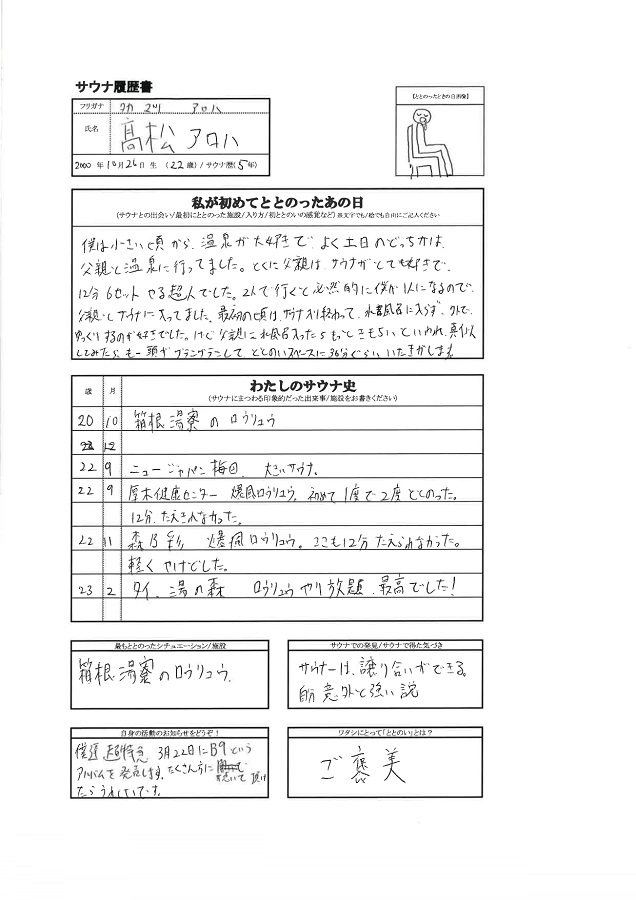 サウナ履歴書
フリガナ タカ マツ アロハ
氏名 髙松 アロハ
2000 年 10 月 26 日 生 (22 歳) / サウナ歴 (5 年)
【ととのったときの自画像】
私が初めてととのったあの日
(サウナとの出会い/最初にととのった施設/入り方/初ととのいの感覚など) ※文字でも/絵でも自由にご記入ください
僕は小さい頃から、温泉が大好きで、よく土日のどっちかは、
父親と温泉に行ってました。とくに父親は、サウナがとても好きで、
12分6セットやる超人でした。2人で行くと必然的に僕が1人になるので、
父親とサウナに入ってました。最初の頃は、サウナ入り終わって、水風呂に入らず、外で、
ゆっくりするのが好きでした。けど父親に水風呂入ったらもっときもちいといわれ、真似
してみたら、もー頭がグラングランして、ととのいスペースに30分ぐらい、いたきがします
わたしのサウナ史
(サウナにまつわる印象的だった出来事/施設をお書きください)
歳 月
20 10 箱根湯寮のロウリュウ
22 9 ニュージャパン梅田、大きいサウナ。
22 9 厚木健康センター 爆風ロウリュウ。初めて1度で2度ととのった。
12分、たえきれなかった。
22 11 森乃彩 爆風ロウリュウ。ここも12分たえられなかった。
軽くやけどでした。
23 2 タイ、湯の森 ロウリュウやり放題、最高でした!
最もととのったシチュエーション/施設
箱根湯寮のロウリュウ。
サウナでの発見/サウナで得た気づき
サウナーは、譲り合いができる。
自分意外と強い説
自身の活動のお知らせをどうぞ!
僕達 超特急 3月22日にB9という
アルバムを発売します。たくさん方に聴いて頂け
たらうれしいです。
ワタシにとって「ととのい」とは?
ご褒美